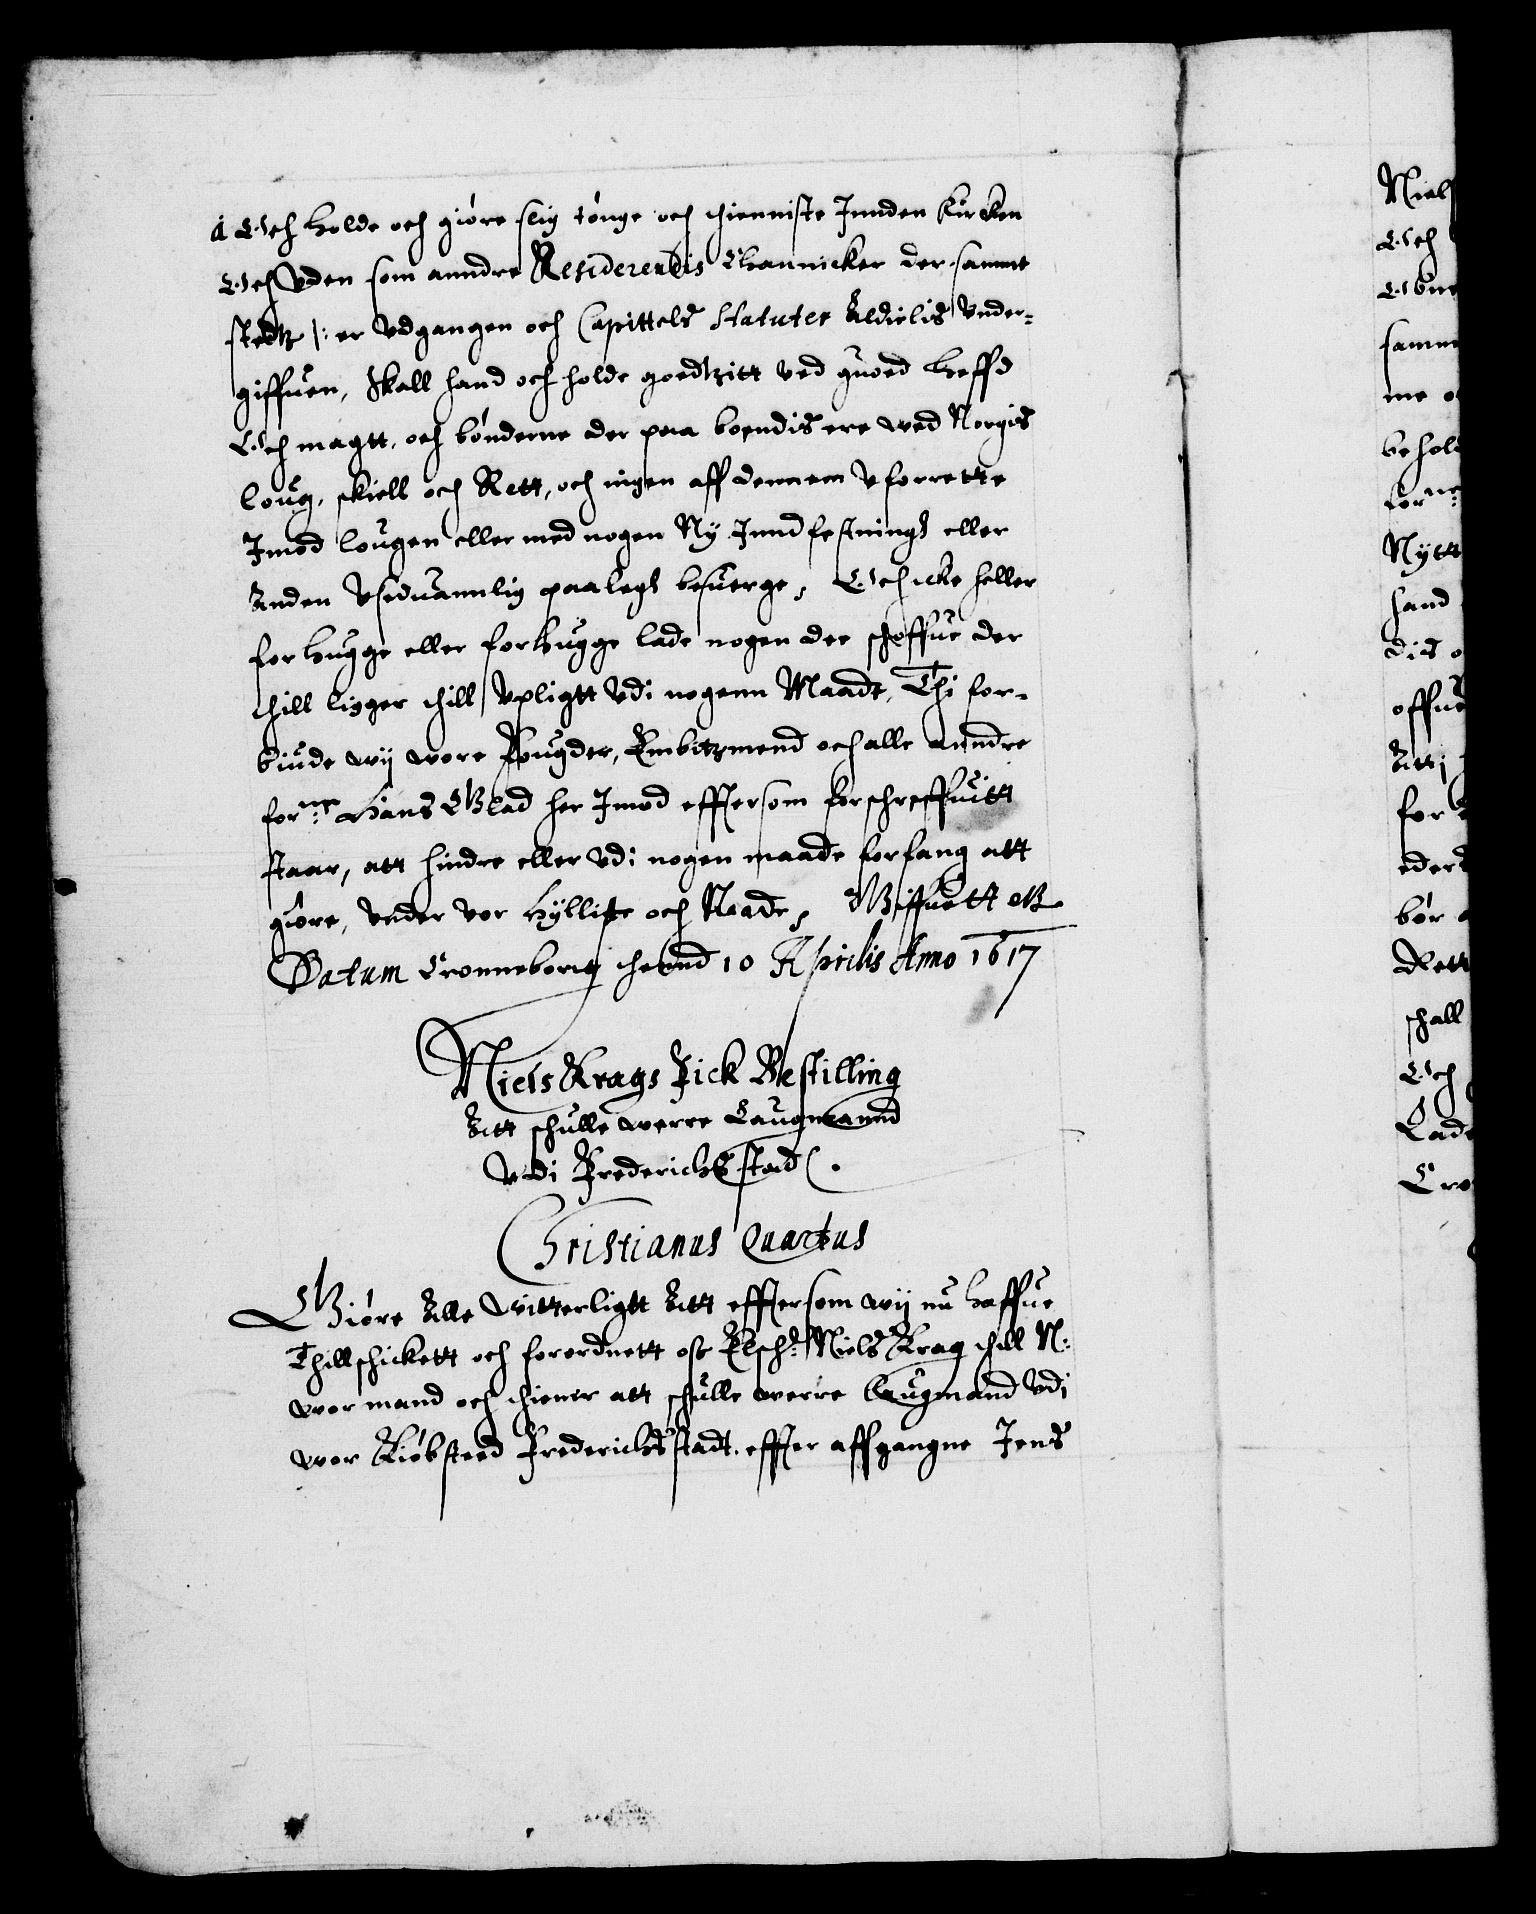 Och holde och giøre slig tønge och thienniste Inden Kircken
Och Uden som anndre Residerendis Channicker der samme
stedtz /: er Udgangen och Capittels Statuter Aldielis Under-
giffuen, Skall hand och holde goedtzitt ved guoed heffd
Och magtt, och bønderne der paa boendis ere wed Norgis
loug, skiell och Rett, och ingen aff dennem Uforrette
Imod lougen eller med nogen Ny Inndfestnings eller
Anden Usedtuannlig paalegs besuerge, Och icke heller
forhugge eller forhugge lade nogen dee schoffue der
thill ligger thill Upligtt Udi nogenn Maade, Thi for-
biude wij wore Fougder, Embitzmend och alle anndre
forne: Hans Glad her Imod effttersom forschreffuitt
staar, att hindre eller Udi nogen maade forfang att
giøre, Under vor hylliste och Naade, Giffuett
Datum Cronneborg thennd 10 Aprilis Anno 1617
Niels Krags Fick Bestilling
Att schulle werre Laugmannd
Udi Frederichsstad.
Christianus Quartus
Giøre Alle witterligtt Att effttersom wij nu haffue
Thillschickett och forordnett oss Elsch: Niels Krag thill N:
wor mand och thiener att schulle werre Laugmand Udi
wor Kiøbsteed Frederichsstadt. efftter affgangne Jens
Niels
Och
samme
me
behol
forne:
Nytt
hand
dis
offue
Att
for
eders
bør
Rett
schall
Och
Lade
Cro